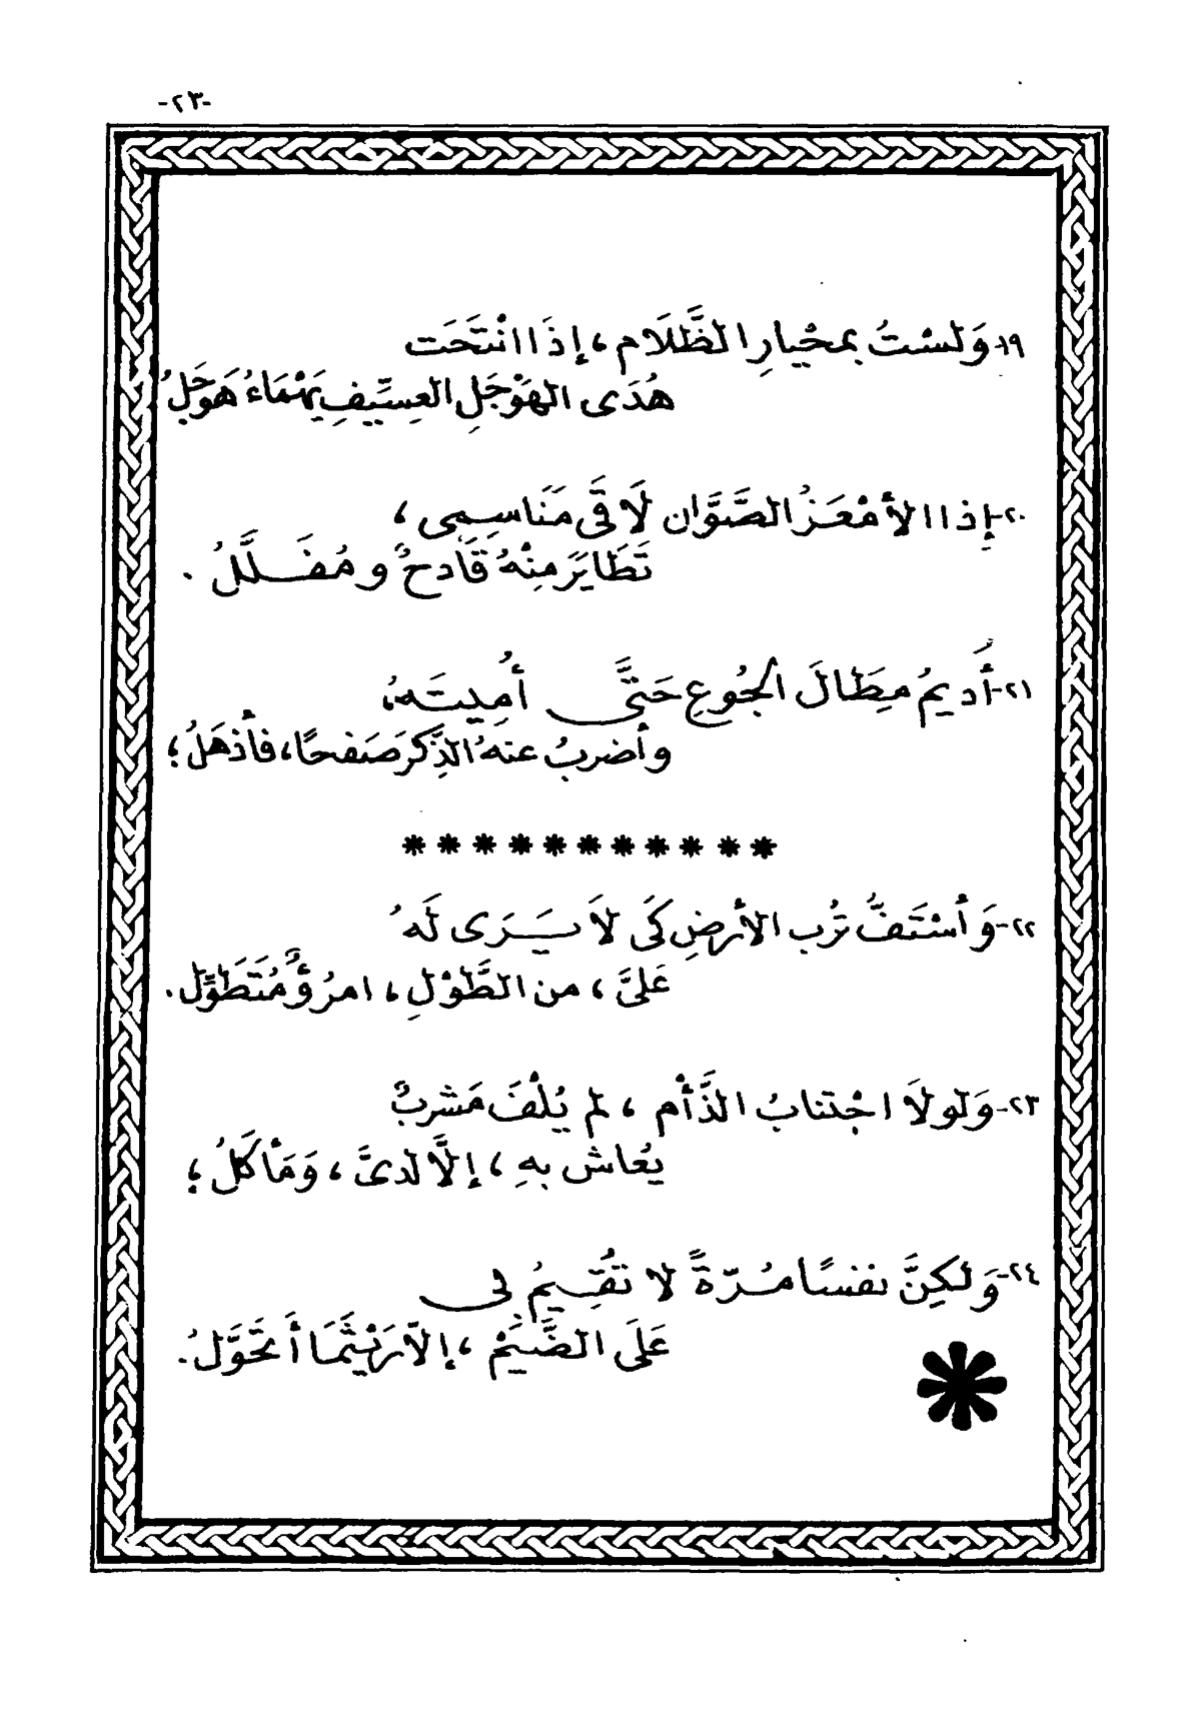 -٢٣-
١٩- وَلَسْتُ بمحْيارِ الظَّلَام ، إذَا انْتَحَت
هُدَى الهَوْجَلِ العِسِّيفِ يَهْمَاءُ هَوجَلُ
٢٠- إذا الأمْعَزُ الصَّوَّان لَاقَى مَنَاسِمِى ،
تَطَايَرَ مِنْهُ قَادحٌ ومُفَلَّلُ .
٢١- أُديمُ مِطَالَ الجُوعِ حَتَّى أُمِيتَهُ،
وأضربُ عنهُ الذِّكرَ صَفحًا، فأذهَلُ؛
* * * * * * * * * * *
٢٢- وَأسْتَفُّ تُرب الأرضِ كَى لاَ يَرَى لَهُ
عَلىَّ ، من الطَّوْلِ ، امرُؤٌ مُتَطَوِّل .
٢٣- وَلولَا اجْتنابُ الذَّأْم ، لم يُلْفَ مَشربٌ
يُعَاش بهِ ، إلَّا لدىَّ ، وَمَأكَلُ ؛
٢٤- وَلكِنَّ نفسًا مُرّةً لا تقِيمُ بى
عَلَى الضَّيْم ، إلّا رَيْثَمَا أتَحَوَّلُ .